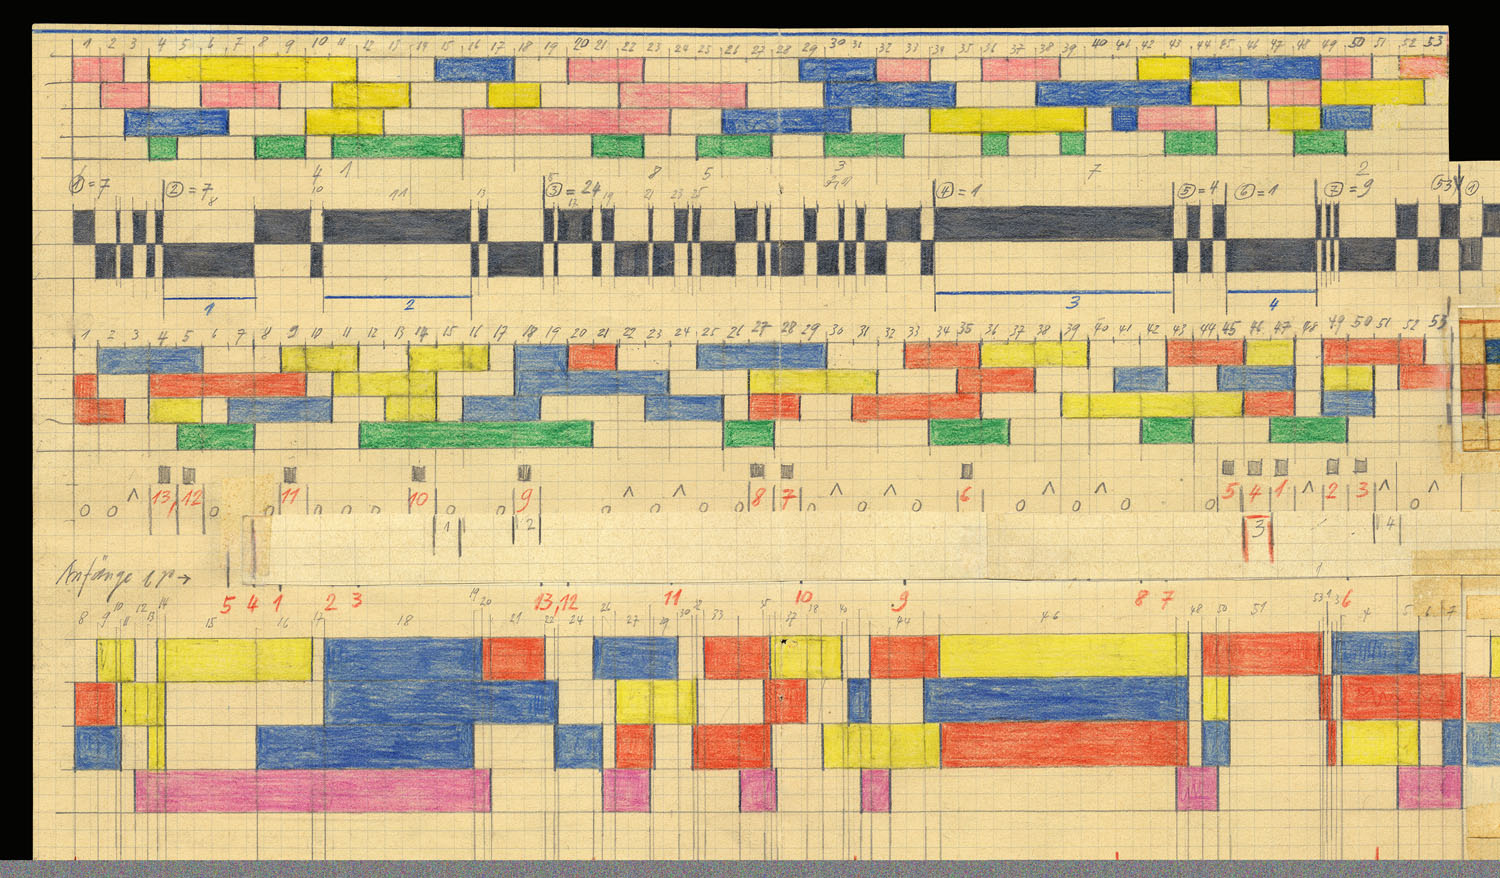 1 2 3 4 5 6 7 8 9 10 11 12 13 14 15 16 17 18 19 20 21 22 23 24 25 26 27 28 29 30 31 32 33 34 35 36 37 38 39 40 41 42 43 44 45 46 47 48 49 50 51 52 53
4 1 8 5 3 7 2
① = 7 ② = 7 8 10 11 13 ③ = 24 12 19 21 23 25 ④ = 1 ⑤ = 4 ⑥ = 1 ⑦ = 9 (53) ①
1 2 3 4
1 2 3 4 5 6 7 8 9 10 11 12 13 14 15 16 17 18 19 20 21 22 23 24 25 26 27 28 29 30 31 32 33 34 35 36 37 38 39 40 41 42 43 44 45 46 47 48 49 50 51 52 53
13, 12 11 10 9 8 7 6 5 4 1 2 3
1 2 3 4
Anfänge
5 4 1 2 3 13,12 11 10 9 8 7 6
8 9 10 11 12 13 14 15 16 17 18 19 20 21 22 24 26 27 29 30 33 37 38 40 44 46 48 50 51 53 1 3 4 5 6 7